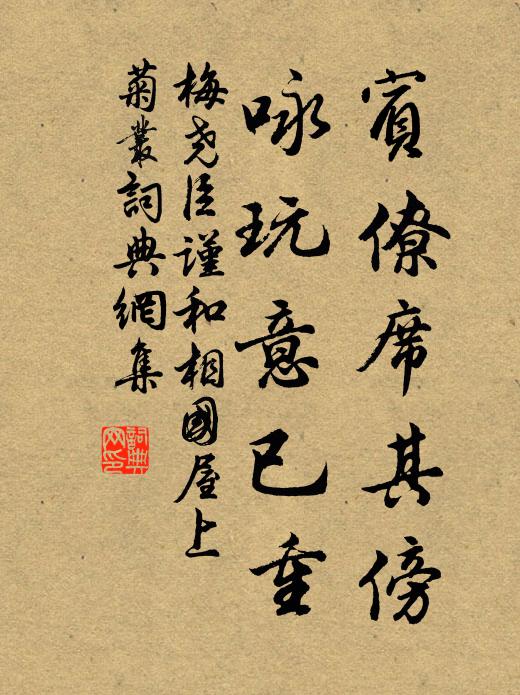 賓僚席其傍
咏玩意已重
梅尧臣謹和相國屋上
菊叢詞典網集
詞典
网印